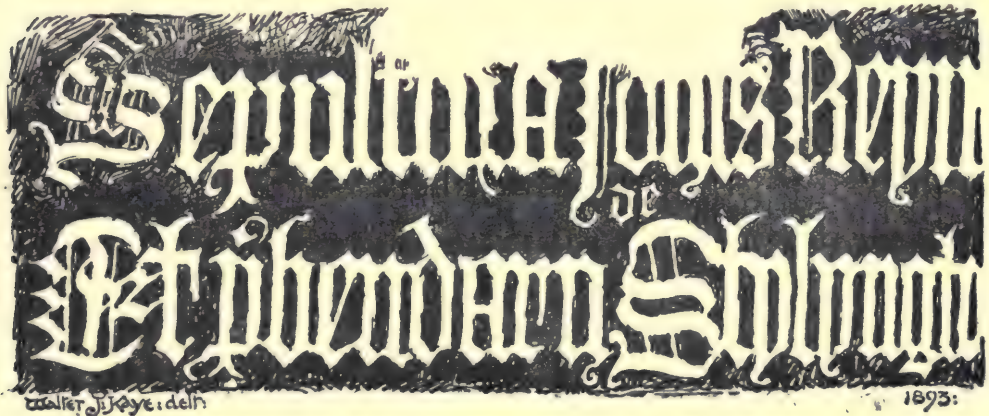 Sepultura Johis Reyn
de
Et pbendarii Stylyngt
Walter J. Kaye: delt: 1893: